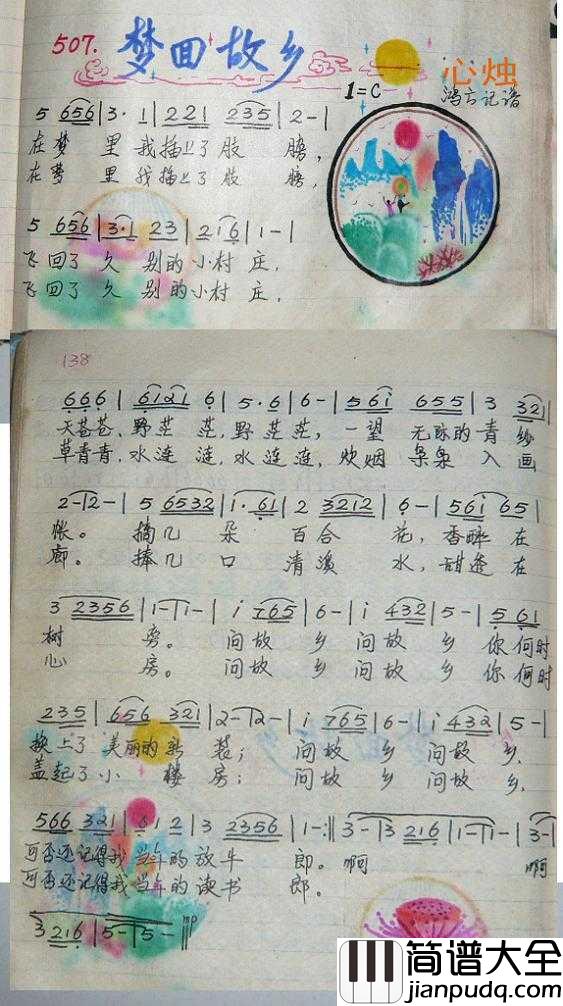 507. 梦回故乡
心烛
1=C 鸿云记谱
5 656|3· 1|221 235|2-|
在梦 里 我插上了肢 膀，
在梦 里 我插上了肢 膀，
5 656|3·1 23|216|1-|
飞回了久 别的小村 庄，
飞回了久 别的小村 庄，
138
666|6121 6|5·6|6-|561 655|3 321|
天苍苍，野茫 茫，野茫茫，一望 无际的青纱
草青青，水涟 涟，水涟涟，炊烟 袅袅 入画
2-|2-|5 6532|1·61|2 3212|6-|561 65|
帐。 摘几 朵 百合 花，香醉 在
廊。 捧几 口 清溪 水，甜透 在
3 2356|1-|1-|i 765|6-|i 432|5-|5 61|
树 旁。 问故 乡 问故 乡 你何时
心 房。 问故 乡 问故 乡 你何时
235|656 321|2-|2-|i 765|6-|i 432|5-|
换上了 美丽的新 装； 问故 乡 问故 乡，
盖起了小 楼房； 问故 乡 问故 乡，
566 321|61 2|3 2356|1-:‖3-|3 216|1-|1-|3-|
可否还记得我当年的放牛 郎。啊 啊
可否还记得我当年的读书 郎。
3 216|5-|5-‖
mp
简谱大全
www.jianpudq.com